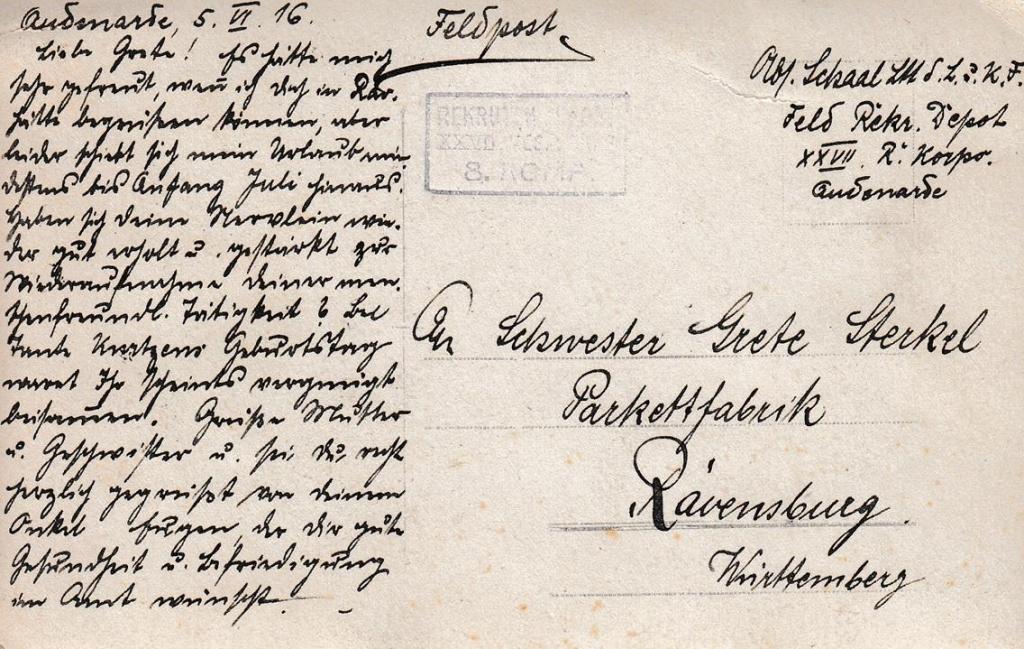 Audenarde, 5. VI. 16.
Liebe Grete! Es hätte mich
sehr gefreut, wenn ich dich in Rav.
hätte begrüssen können, aber
leider schiebt sich mein Urlaub min-
destens bis Anfang Juli hinaus.
Haben sich deine Nervlein wie-
der gut erholt u. gestärkt zur
Wiederaufnahme deiner men-
schenfreundl. Tätigkeit? Bei
Tante Geburtstag
waret Ihr scheints vergnügt
beisammen. Grüße Mutter
u. Geschwister u. sei du recht
herzlich gegrüßt von deinem
Onkel Eugen, der dir gute
Gesundheit u. Befriedigung
im Amt wünscht.
Feldpost
REKRUTEN
XXVII.
8. KOMP.
Abs. Schaal Lt. d. L. u. K. F.
Feld Rekr. Depot
XXVII R. Korps.
Audenarde
An Schwester Grete Sterkel
Parkettfabrik
Ravensburg.
Württemberg